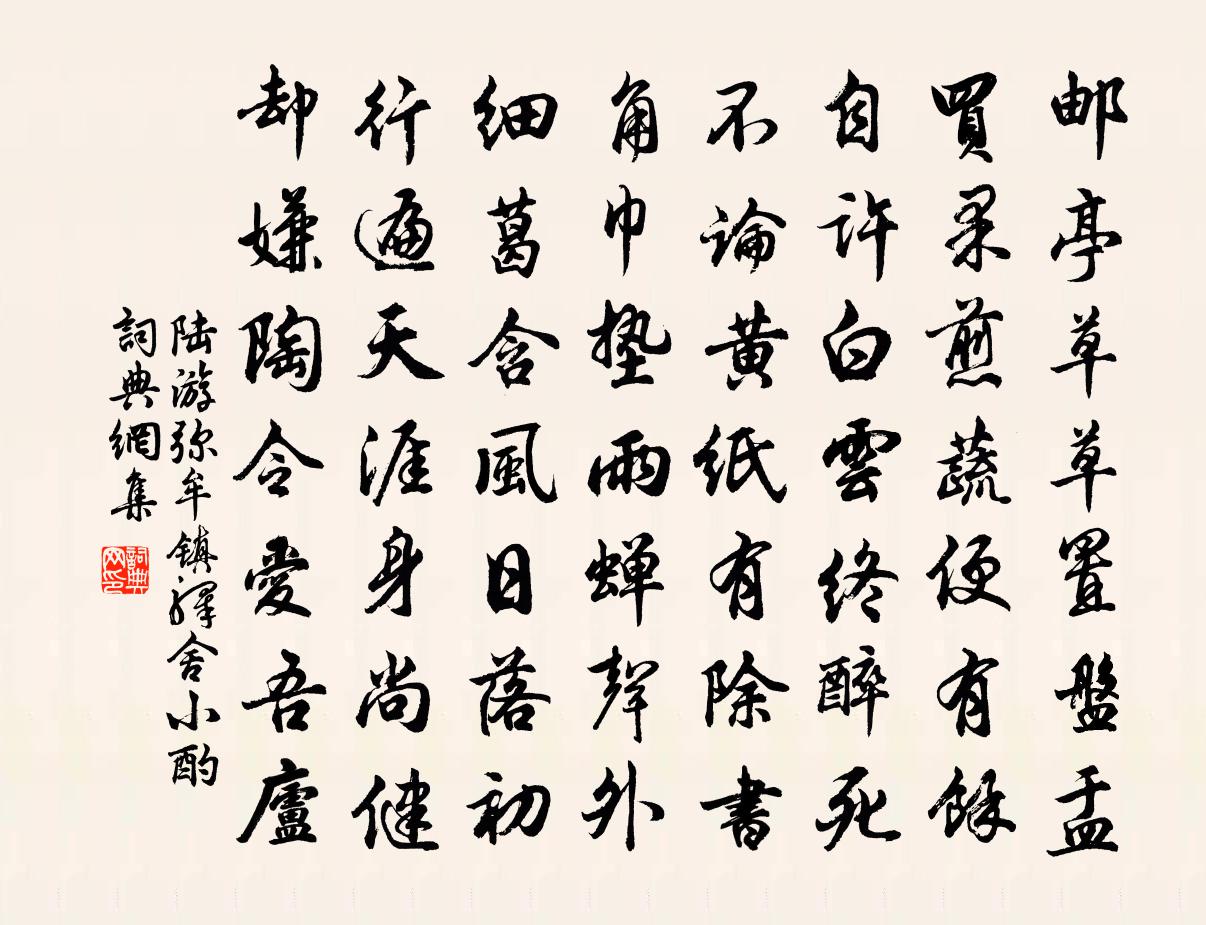 邮亭草草置盤盂
買果煎蔬便有餘
自許白雲終醉死
不論黃紙有除書
角巾墊雨蟬聲外
細葛含風日落初
行遍天涯身尚健
却嫌陶令愛吾廬
陆游弥牟镇驛舍小酌
詞典網集
詞典网印